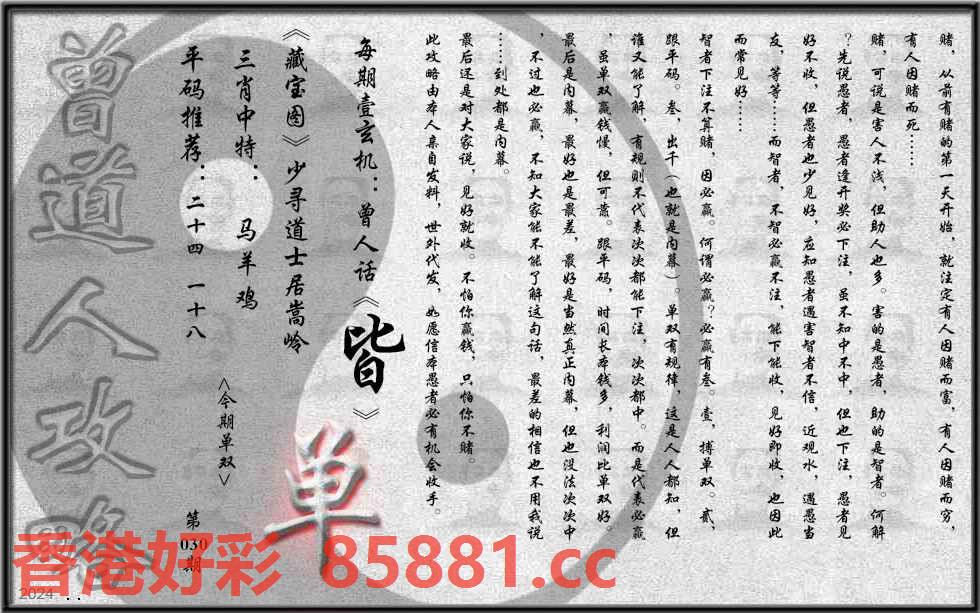 赌，从前有赌的第一天开始，就注定有人因赌而富，有人因赌而穷，
有人因赌而死……
赌，可说是害人不浅，但助人也多。害的是愚者，助的是智者。何解
？先说愚者，愚者逢开奖必下注，虽不知中不中，但也下注，愚者见
好不收，但愚者也少见好，应知愚者遇害智者不信，近观水，遇愚当
友，等等……而智者，不智必赢不注，能下能收，见好即收，也因此
而常见好……
智者下注不算赌，因必赢。何谓必赢？必赢有叁。壹，搏单双。贰，
跟平码。叁，出千（也就是内幕）。单双有规律，这是人人都知，但
谁又能了解，有规则不代表次次都能下注，次次都中。而是代表必赢
，虽单双赢钱慢，但可靠。跟平码，时间长本钱多，利润比单双好。
最后是内幕，最好也是最差，最好是当然真正内幕，但也没法次次中
，不过也必赢，不知大家能不能了解这句话，最差的相信也不用我说
……到处都是内幕。
最后还是对大家说，见好就收。不怕你赢钱，只怕你不赌。
此攻略由本人亲自发料，世外代发，如愿信本愚者必有机会收手。
每期壹玄机：曾人话《皆》
《藏宝图》少寻道士居嵩岭
三肖中特：马羊鸡
<今期单双>
单
平码推荐：二十四 一十八
第
030
期
曾道人攻略
香港好彩 85881.cc
2024